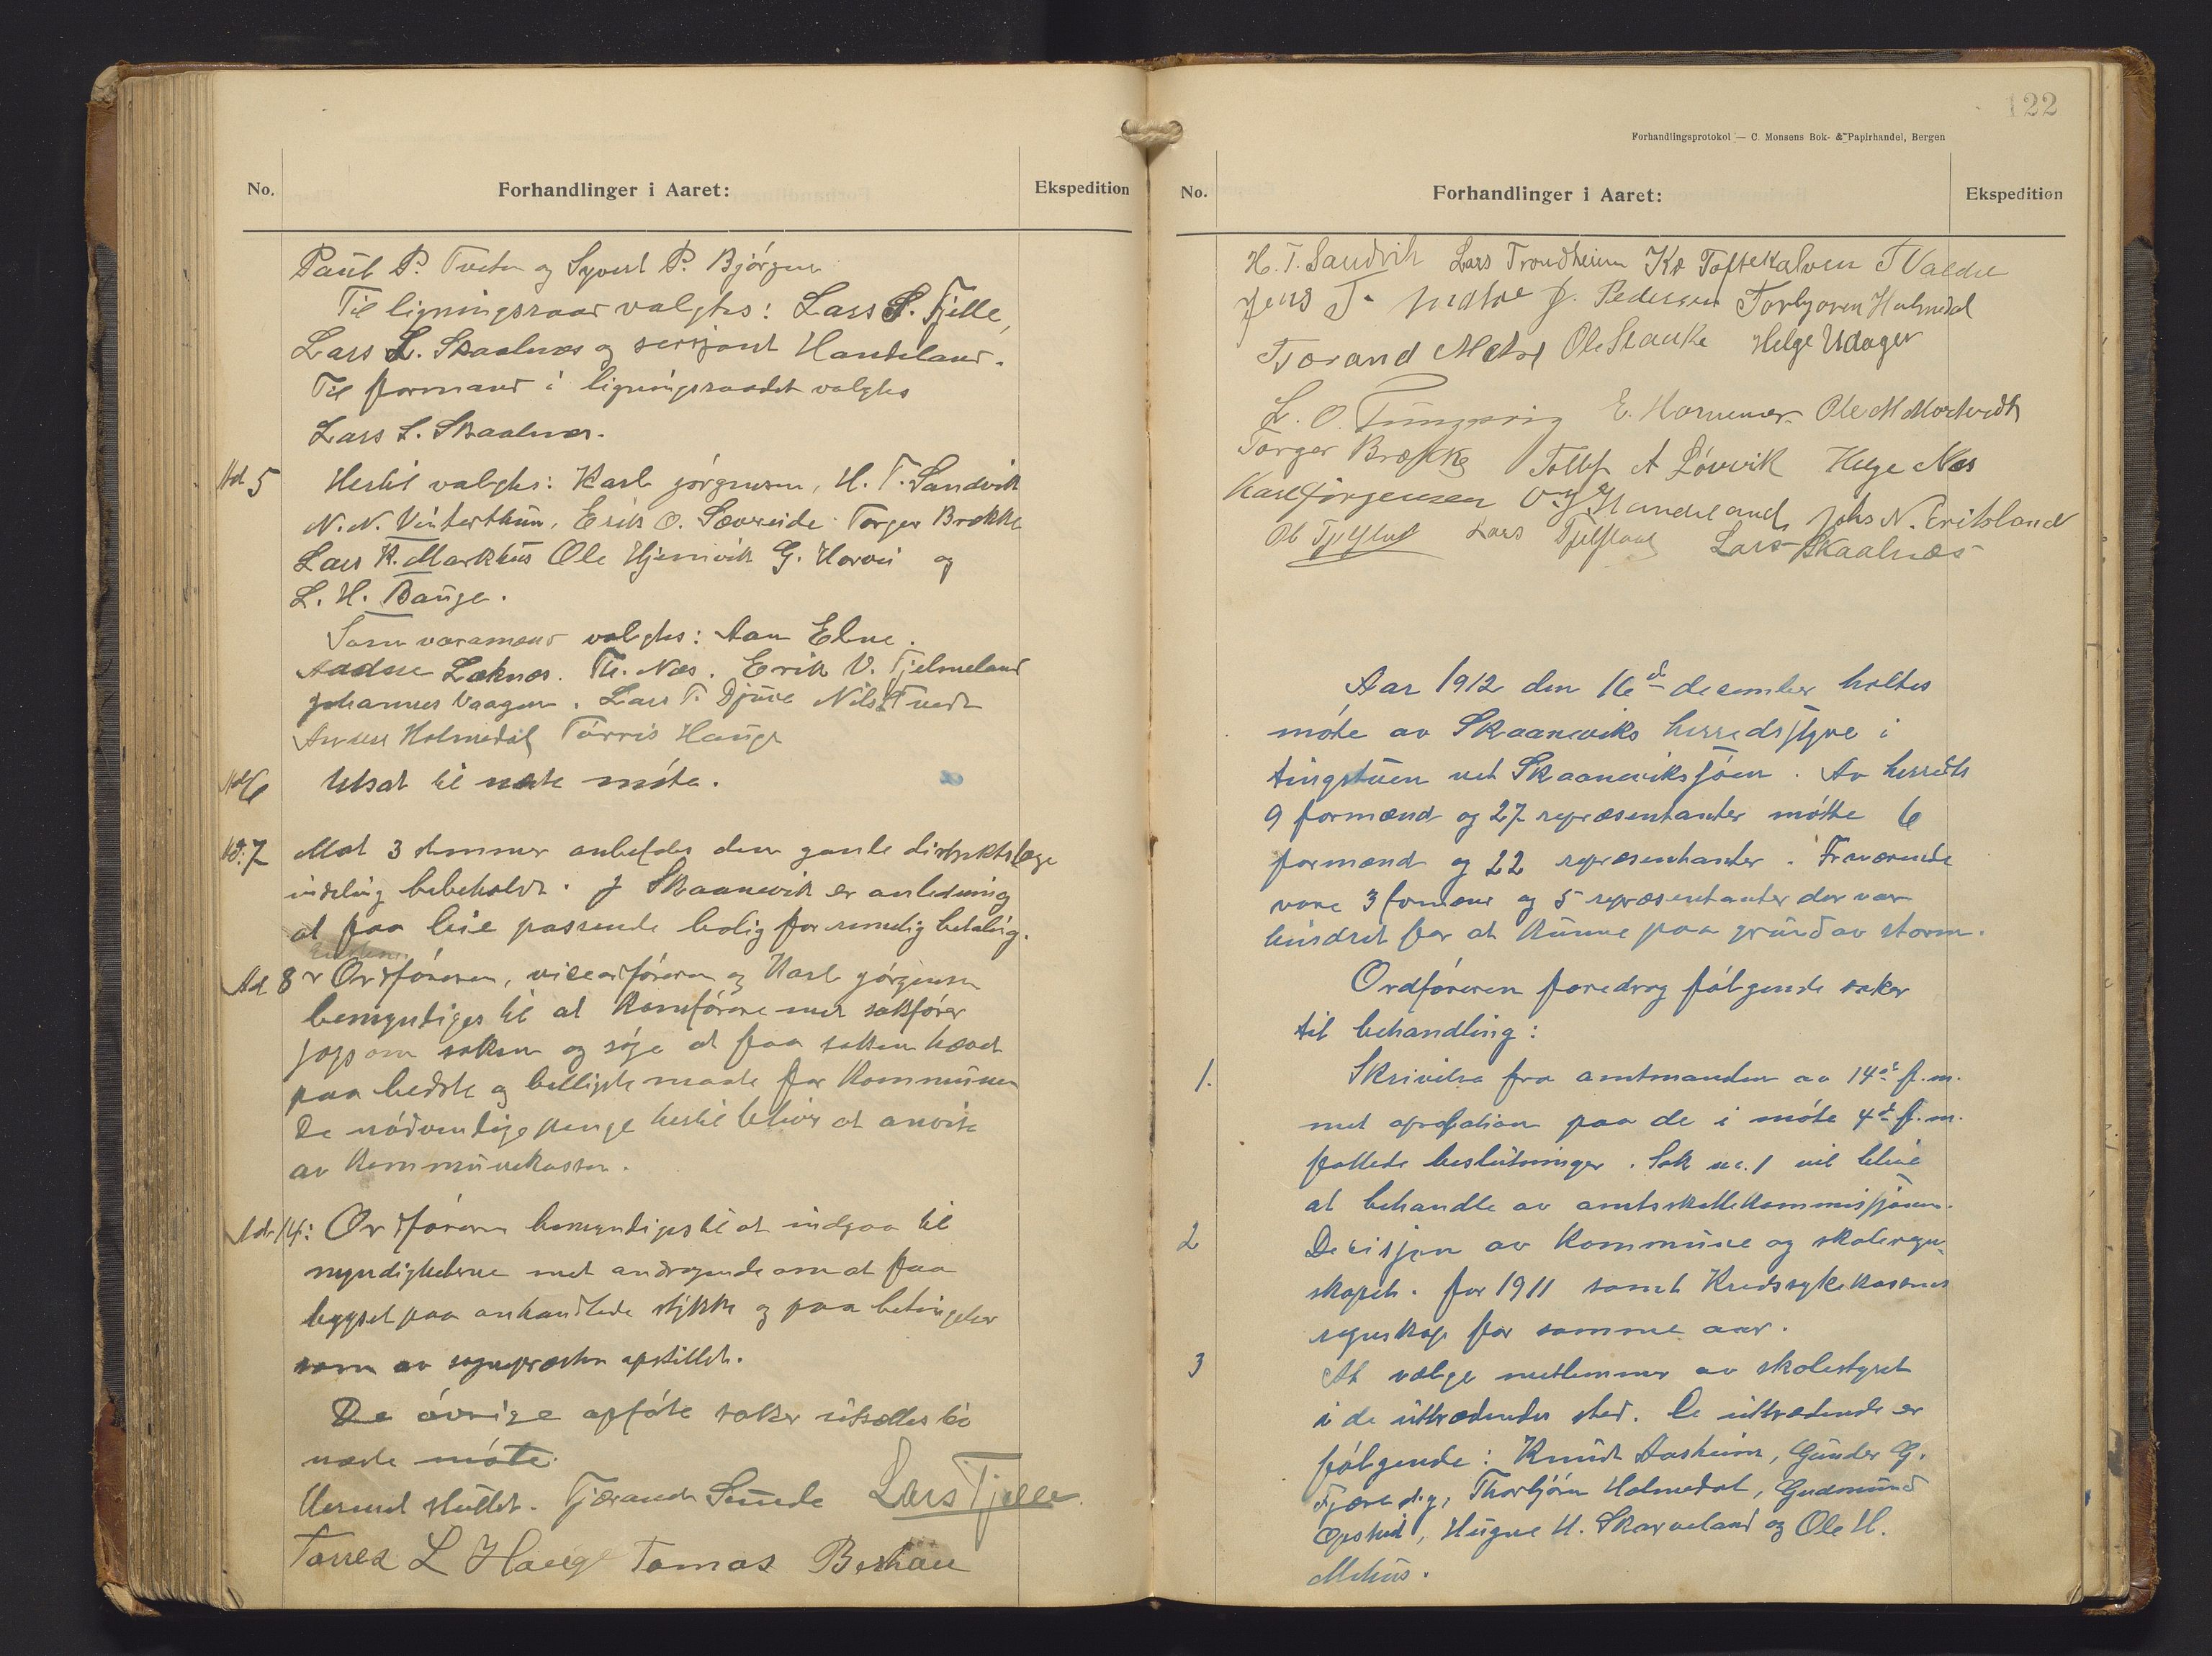 No. Forhandlinger i Aaret: Ekspedition
Paul P. Tveta og Syvert P. Bjørgen
Til ligningsraad valgtes: Lars S. Fjelle,
Lars L. Skaalnæs og sersjant Handeland.
Til formand i ligningsraadet valgtes
Lars L. Skaalnæs.
Ad 5 Hertil valgtes: Karl Jørgensen, H. T. Sandvik
N. N. Vinterthun, Erik O. Sævreide Torger Brække
Lars K. Markhus Ole Hjemvik G. Harvei og
L. H. Bauge.
Som varamænd valgtes: Aan Ebne.
Aadne Løknæs. Th. Næs. Erik V. Fjelmeland
Johannes Vaagen. Lars T. Djuve Nils Tvedt
Anders Holmedal Tørris Hauge
Ad 6 Utsat til næste møte.
Ad. 7 Mot 3 stemmer anbefales den gamle distriktslæge
indeling bibeholdt. I Skaanevik er anledning
at faa leie passende bolig for rimelig betaling.
Ad 8 Ordføreren, viceordføreren og Karl Jørgensen
bemyndiges til at konferere med sakfører
om saken og søge at faa saken hævet
paa bedste og billigste maate for kommunen
De nødvendige penge hertil blir at anvise
av kommunekassen.
Ad. 14: Ordføreren bemyndiges til at indgaa til
myndigheterne med andragende om at faa
bygsel paa omhandlede stykke og paa betingelser
som av sogneprsten opstillet.
De øvrige opførte saker utsættes til
næste møte.
Hermed sluttet. Tjærand Sunde Lars Fjelle
Torres L Hauge Tomas Berhau
122
Forhandlingsprotokol — C. Monsens Bok- & Papirhandel, Bergen
No. Forhandlinger i Aaret: Ekspedition
H. T. Sandvik Lars Trondheim Kr Toftekalven T Valdre
Jens T. Matre J. Pedersen Torbjoren Holmedal
Tjorand Matre Ole Stauke Helge Udager
L. O. Tungesvig E. Hammer Ole M Mortvedt
Torger Brække Tollef A Løvvik Helge Næs
Karl Jørgensen Handeland Johs N. Eritsland
Ol Fjelstad Lars Fjelstad Lars Skaalnæs
Aar 1912 den 16de december holtes
møte av Skaaneviks herredstyre i
tingstuen ved Skaanevikssjøen. Av herredts
9 formænd og 27 repræsentanter møtte 6
formænd og 22 repræsentanter. Fraværende
vare 3 formænd og 5 repræsentanter der var
hindret for at kunne paa grund av storm.
Ordføreren foredrog følgende saker
til behandling:
1. Skrivelse fra amtmanden av 14de f.m.
med aprobation paa de i møte 4de f.m.
fattede beslutninger. Sak nr. 1 vil blive
at behandle av amtsskattekommissjonen.
2 Decisjon av kommune og skoleregn-
skapet. for 1911 samt Kredssykekassens
regnskap for samme aar.
3 At vælge medlemmer av skolestyret
i de uttrædendes sted. De uttrædende er
følgende: Knud Aasheim, Gunder G.
Fjære, Thorbjørn Holmedal, Gudmund
Opshed, Hugne H. Skarveland og Ole H.
Mehus.